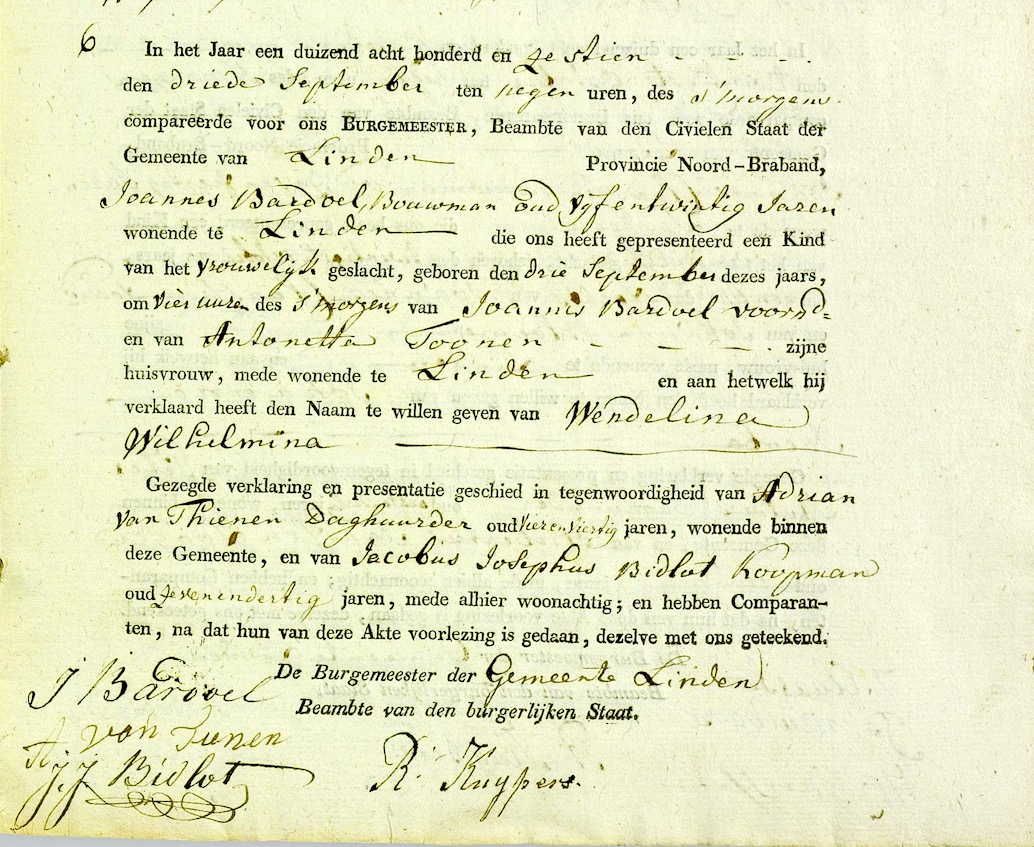 6 In het Jaar een duizend acht honderd en zestien - - - -
den driede September ten negen uren, des s'morgens
compareerde voor ons BURGEMEESTER, Beambte van den Civielen Staat der
Gemeente van Linden Provincie Noord-Braband,
Joannes Bardoel, Bouwman oud vyfentwintig Jaren
wonende te Linden die ons heeft gepresenteerd een Kind
van het vrouwelyk geslacht, geboren den drie September dezes jaars,
om vier uuren des s'morgens van Joannes Bardoel voornd=
en van Antonetta Toonen - - - zijne
huisvrouw, mede wonende te Linden en aan hetwelk hij
verklaard heeft den Naam te willen geven van Wendelina
Wilhelmina
Gezegde verklaring en presentatie geschied in tegenwoordigheid van Adrian
van Thienen Daghuurder oud vierenviertig jaren, wonende binnen
deze Gemeente, en van Jacobus Josephus Bidlot Koopman
oud zevenendertig jaren, mede alhier woonachtig; en hebben Comparan-
ten, na dat hun van deze Akte voorlezing is gedaan, dezelve met ons geteekend.
De Burgemeester der Gemeente Linden
Beambte van den burgerlijken Staat.
J Bardoel
A van Tienen
J. J. Bidlot
R. Kuypers.